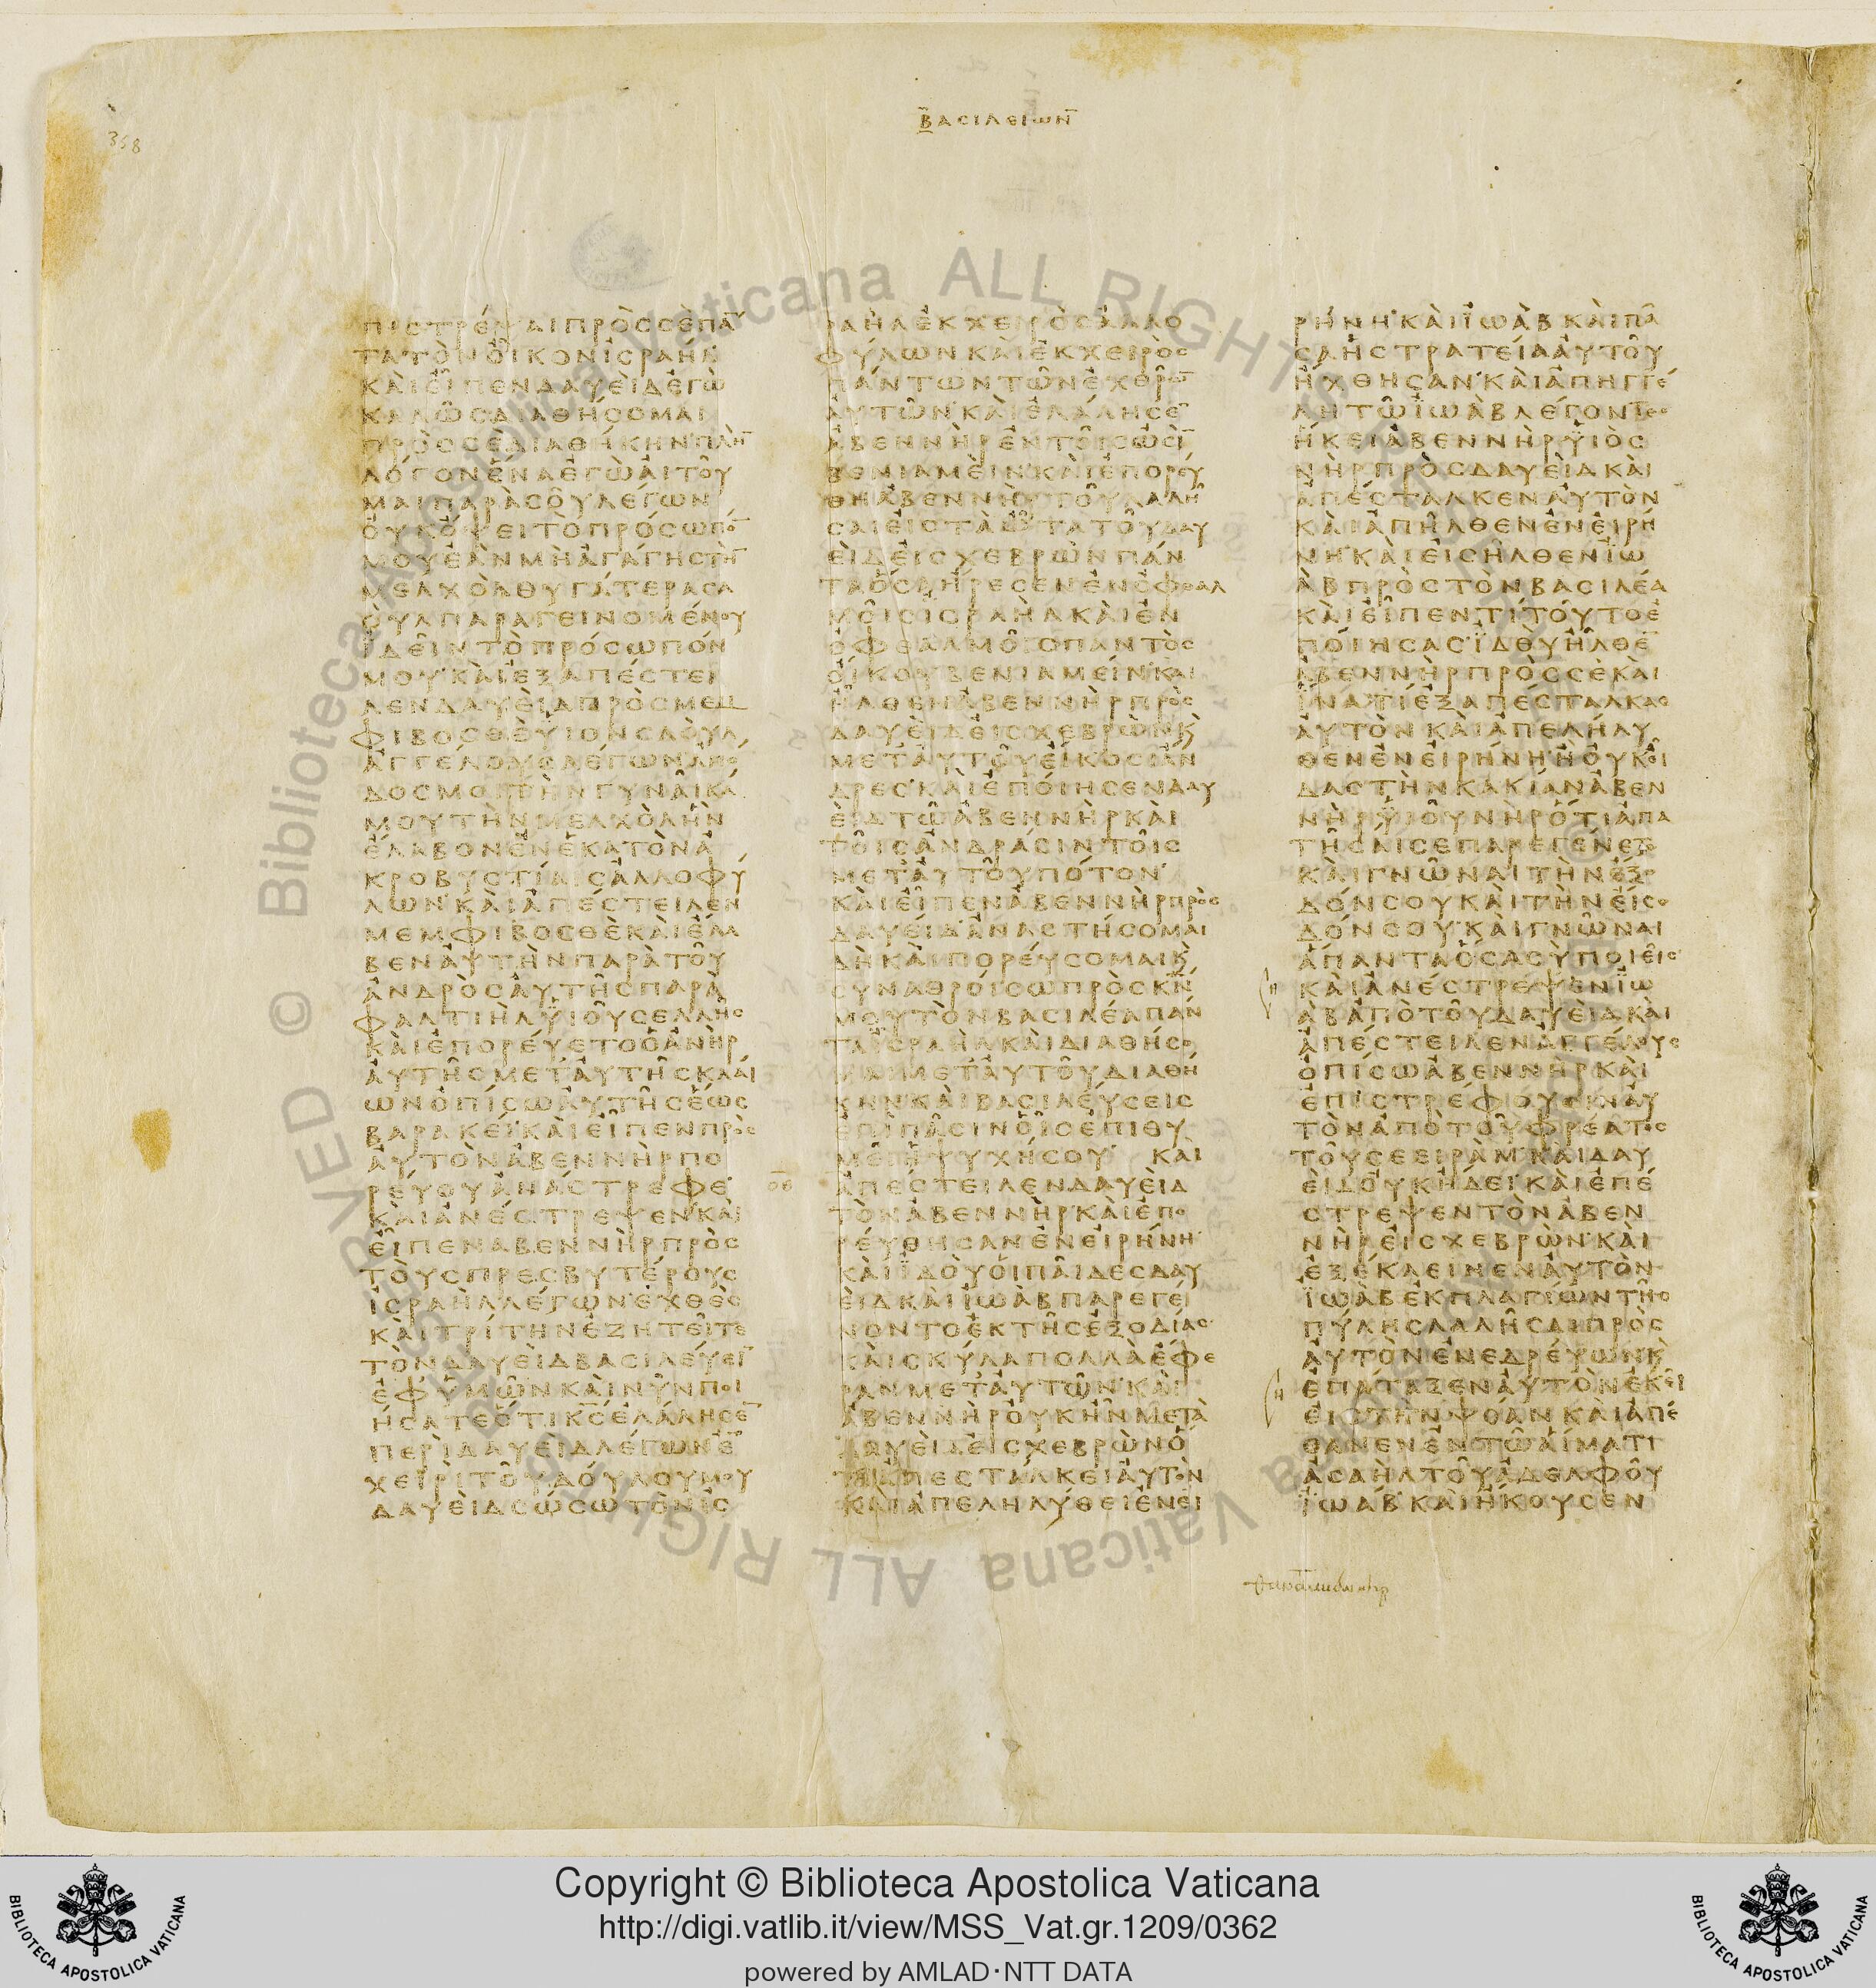 358
Β ΒΑϹΙΛΕΙΩΝ
ΠΙϹΤΡΕΨΑΙΠΡΟϹϹΕΠΑ̅
ΤΑΤΟΝΟΙΚΟΝΙϹΡΑΗΛ
ΚΑΙΕΙΠΕΝΔΑΥΕΙΔΕΓΩ
ΚΑΛΩϹΔΙΑΘΗϹΟΜΑΙ
ΠΡΟϹϹΕΔΙΑΘΗΚΗΝΠΛΗ̅
ΛΟΓΟΝΕΝΑΕΓΩΑΙΤΟΥ
ΜΑΙΠΑΡΑϹΟΥΛΕΓΩΝ
ΟΥΚΟΨΕΙΤΟΠΡΟϹΩΠΟ̅
ΜΟΥΕΑΝΜΗΑΓΑΓΗϹΤΗ̅
ΜΕΛΧΟΛΘΥΓΑΤΕΡΑϹΑ
ΟΥΛΠΑΡΑΓΕΙΝΟΜΕΝΟΥ
ΪΔΕΙΝΤΟΠΡΟϹΩΠΟΝ
ΜΟΥΚΑΙΕΞΑΠΕϹΤΕΙ
ΛΕΝΔΑΥΕΙΔΠΡΟϹΜΕΜ
ΦΙΒΟϹΘΕΥΙΟΝϹΑΟΥΛ
ΑΓΓΕΛΟΥϹΛΕΓΩΝΑΠΟ
ΔΟϹΜΟΙΤΗΝΓΥΝΑΙΚΑ
ΜΟΥΤΗΝΜΕΛΧΟΛΗΝ
ΕΛΑΒΟΝΕΝΕΚΑΤΟΝΑ
ΚΡΟΒΥϹΤΙΑΙϹΑΛΛΟΦΥ
ΛΩΝΚΑΙΑΠΕϹΤΕΙΛΕΝ
ΜΕΜΦΙΒΟϹΘΕΚΑΙΕΛΑ
ΒΕΝΑΥΤΗΝΠΑΡΑΤΟΥ
ΑΝΔΡΟϹΑΥΤΗϹΠΑΡΑ
ΦΑΛΤΙΗΛΥΙΟΥϹΕΛΛΗϹ
ΚΑΙΕΠΟΡΕΥΕΤΟΟΑΝΗΡ
ΑΥΤΗϹΜΕΤΑΥΤΗϹΚΛΑΙ
ΩΝΟΠΙϹΩΑΥΤΗϹΕΩϹ
ΒΑΡΑΚΕΙΚΑΙΕΙΠΕΝΠΡΟϹ
ΑΥΤΟΝΑΒΕΝΝΗΡΠΟ
ΡΕΥΟΥΑΝΑϹΤΡΕΦΕ
ΚΑΙΑΝΕϹΤΡΕΨΕΝΚΑΙ
ΕΙΠΕΝΑΒΕΝΝΗΡΠΡΟϹ
ΤΟΥϹΠΡΕϹΒΥΤΕΡΟΥϹ
ΙϹΡΑΗΛΛΕΓΩΝΕΧΘΕϹ
ΚΑΙΤΡΙΤΗΝΕΖΗΤΕΙΤΕ
ΤΟΝΔΑΥΕΙΔΒΑϹΙΛΕΥΕΙ̅
ΕΦΥΜΩΝΚΑΙΝΥΝΠΟΙ
ΗϹΑΤΕΟΤΙΚ̅Ϲ̅ΕΛΑΛΗϹΕ̅
ΠΕΡΙΔΑΥΕΙΔΛΕΓΩΝΕ̅
ΧΕΙΡΙΤΟΥΔΟΥΛΟΥΜΟΥ
ΔΑΥΕΙΔϹΩϹΩΤΟΝΙϹ
ΡΑΗΛΕΚΧΕΙΡΟϹΑΛΛΟ
ΦΥΛΩΝΚΑΙΕΚΧΕΙΡΟϹ
ΠΑΝΤΩΝΤΩΝΕΧΘΡΩ̅
ΑΥΤΩΝΚΑΙΕΛΑΛΗϹΕ̅
ΑΒΕΝΝΗΡΕΝΤΟΙϹΩϹΙ̅
ΒΕΝΙΑΜΕΙΝΚΑΙΕΠΟΡΕΥ
ΘΗΑΒΕΝΝΗΡΤΟΥΛΑΛΗ
ϹΑΙΕΙϹΤΑΩΤΑΤΟΥΔΑΥ
ΕΙΔΕΙϹΧΕΒΡΩΝΠΑΝ
ΤΑΟϹΑΗΡΕϹΕΝΕΝΟΦΘΑΛ
ΜΟΙϹΙϹΡΑΗΛΚΑΙΕΝ
ΟΦΘΑΛΜΟΙϹΠΑΝΤΟϹ
ΟΙΚΟΥΒΕΝΙΑΜΕΙΝΚΑΙ
ΗΛΘΕΝΑΒΕΝΝΗΡΠΡΟϹ
ΔΑΥΕΙΔΕΙϹΧΕΒΡΩΝΚ
ΜΕΤΑΥΤΟΥΕΙΚΟϹΙΑΝ
ΔΡΕϹΚΑΙΕΠΟΙΗϹΕΝΔΑΥ
ΕΙΔΤΩΑΒΕΝΝΗΡΚΑΙ
ΤΟΙϹΑΝΔΡΑϹΙΝΤΟΙϹ
ΜΕΤΑΥΤΟΥΠΟΤΟΝ
ΚΑΙΕΙΠΕΝΑΒΕΝΝΗΡΠΡΟϹ
ΔΑΥΕΙΔΑΝΑϹΤΗϹΟΜΑΙ
ΔΗΚΑΙΠΟΡΕΥϹΟΜΑΙΚ
ϹΥΝΑΘΡΟΙϹΩΠΡΟϹΚ̅Ν̅
ΜΟΥΤΟΝΒΑϹΙΛΕΑΠΑΝ
ΤΑΙϹΡΑΗΛΚΑΙΔΙΑΘΗϹΟ
ΜΑΙΜΕΤΑΥΤΟΥΔΙΑΘΗ
ΚΗΝΚΑΙΒΑϹΙΛΕΥϹΕΙϹ
ΕΠΙΠΑϹΙΝΟΙϹΕΠΙΘΥ
ΜΕΙΗΨΥΧΗϹΟΥ ΚΑΙ
ΑΠΕϹΤΕΙΛΕΝΔΑΥΕΙΔ
ΤΟΝΑΒΕΝΝΗΡΚΑΙΕΠΟ
ΡΕΥΘΗϹΑΝΕΝΕΙΡΗΝΗ
ΚΑΙΪΔΟΥΟΙΠΑΙΔΕϹΔΑΥ
ΕΙΔΚΑΙΪΩΑΒΠΑΡΕΓΕΙ
ΝΟΝΤΟΕΚΤΗϹΕΞΟΔΙΑϹ
ΚΑΙϹΚΥΛΑΠΟΛΛΑΕΦΕ
ΡΑΝΜΕΤΑΥΤΩΝΚΑΙ
ΑΒΕΝΝΗΡΟΥΚΗΝΜΕΤΑ
ΔΑΥΕΙΔΕΙϹΧΕΒΡΩΝΟ
ΤΙΑΠΕϹΤΑΛΚΕΙΑΥΤΟΝ
ΚΑΙΑΠΕΛΗΛΥΘΕΙΕΝΕΙ
ΡΗΝΗΚΑΙΪΩΑΒΚΑΙΠΑ
ϹΑΗϹΤΡΑΤΕΙΑΑΥΤΟΥ
ΗΧΘΗϹΑΝΚΑΙΑΠΗΓΓΕ
ΛΗΤΩΪΩΑΒΛΕΓΟΝΤΕϹ
ΗΚΕΙΑΒΕΝΝΗΡΥΙΟϹ
ΝΗΡΠΡΟϹΔΑΥΕΙΔΚΑΙ
ΑΠΕϹΤΑΛΚΕΝΑΥΤΟΝ
ΚΑΙΑΠΗΛΘΕΝΕΝΕΙΡΗ
ΝΗΚΑΙΕΙϹΗΛΘΕΝΪΩ
ΑΒΠΡΟϹΤΟΝΒΑϹΙΛΕΑ
ΚΑΙΕΙΠΕΝΤΙΤΟΥΤΟΕ
ΠΟΙΗϹΑϹΪΔΟΥΗΛΘΕ̅
ΑΒΕΝΝΗΡΠΡΟϹϹΕΚΑΙ
ΪΝΑΤΙΕΞΑΠΕϹΤΑΛΚΑϹ
ΑΥΤΟΝΚΑΙΑΠΕΛΗΛΥ
ΘΕΝΕΝΕΙΡΗΝΗΗΟΥΚΟΙ
ΔΑϹΤΗΝΚΑΚΙΑΝΑΒΕΝ
ΝΗΡΥΙΟΥΝΗΡΟΤΙΑΠΑ
ΤΗϹΑΙϹΕΠΑΡΕΓΕΝΕΤΟ
ΚΑΙΓΝΩΝΑΙΤΗΝΕΞΟ
ΔΟΝϹΟΥΚΑΙΤΗΝΕΙϹΟ
ΔΟΝϹΟΥΚΑΙΓΝΩΝΑΙ
ΑΠΑΝΤΑΟϹΑϹΥΠΟΙΕΙϹ
ΚΑΙΑΝΕϹΤΡΕΨΕΝΪΩ
ΑΒΑΠΟΤΟΥΔΑΥΕΙΔΚΑΙ
ΑΠΕϹΤΕΙΛΕΝΑΓΓΕΛΟΥϹ
ΟΠΙϹΩΑΒΕΝΝΗΡΚΑΙ
ΕΠΙϹΤΡΕΦΟΥϹΙΝΑΥ
ΤΟΝΑΠΟΤΟΥΦΡΕΑΤΟϹ
ΤΟΥϹΕΕΙΡΑΜΚΑΙΔΑΥ
ΕΙΔΟΥΚΗΔΕΙΚΑΙΕΠΕ
ϹΤΡΕΨΕΝΤΟΝΑΒΕΝ
ΝΗΡΕΙϹΧΕΒΡΩΝΚΑΙ
ΕΞΕΚΛΕΙΝΕΝΑΥΤΟΝ
ΪΩΑΒΕΚΠΛΑΓΙΩΝΤΗϹ
ΠΥΛΗϹΛΑΛΗϹΑΙΠΡΟϹ
ΑΥΤΟΝΕΝΕΔΡΕΥΩΝΚ
ΕΠΑΤΑΞΕΝΑΥΤΟΝΕΚΕΙ
ΕΙϹΤΗΝΨΟΑΝΚΑΙΑΠΕ
ΘΑΝΕΝΕΝΤΩΑΙΜΑΤΙ
ΑϹΑΗΛΤΟΥΑΔΕΛΦΟΥ
ΪΩΑΒΚΑΙΗΚΟΥϹΕΝ
Copyright © Biblioteca Apostolica Vaticana
http://digi.vatlib.it/view/MSS_Vat.gr.1209/0362
powered by AMLAD･NTT DATA
BIBLIOTECA APOSTOLICA VATICANA
BIBLIOTECA APOSTOLICA VATICANA
© Biblioteca Apostolica Vaticana ALL RIGHTS RESERVED